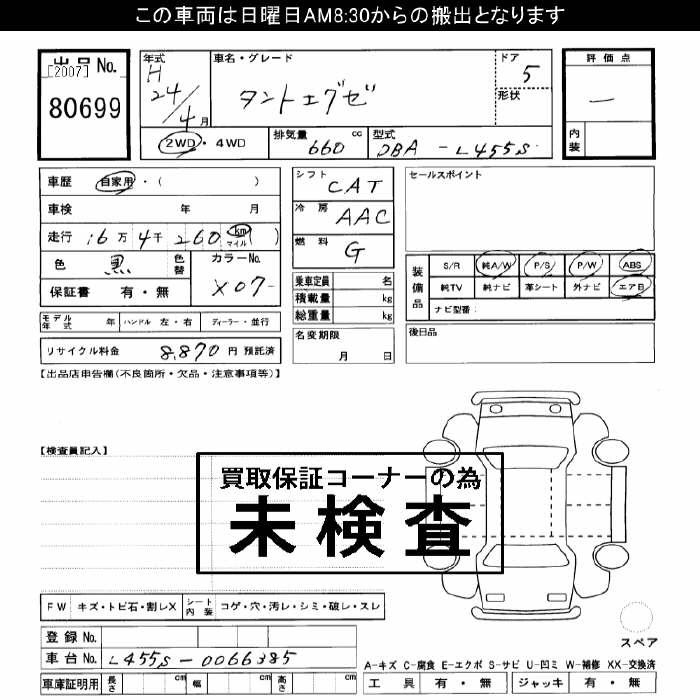 この車両は日曜日AM8:30からの搬出となります
出品No.
[2007]
80699
年式
H
24/4月
車名・グレード
タントエグゼ
ドア
5
形状
評価点
―
内装
2WD・4WD
排気量 660 cc
型式 DBA-L455S
車歴 自家用・( )
車検 年 月
走行 16万4千260 km マイル ( )
色 黒 色替 カラーNo. X07-
保証書 有・無
シフト CAT
冷房 AAC
燃料 G
乗車定員 名
積載量 kg
総重量 kg
セールスポイント
装備品
S/R 純A/W P/S P/W ABS
純TV 純ナビ 革シート 外ナビ エアB
ナビ型番:
モデル年式 年 ハンドル 左・右 ディーラー・並行
リサイクル料金 8,870 円 預託済
名変期限
月 日
後日品
【出品店申告欄(不良箇所・欠品・注意事項等)】
【検査員記入】
買取保証コーナーの為
未検査
FW キズ・トビ石・割レX シート内装 コゲ・穴・汚レ・シミ・破レ・スレ
スペア
登録No.
車台No. L455S-0066385
A-キズ C-腐食 E-エクボ S-サビ U-凹ミ W-補修 XX-交換済
車庫証明用 長さ cm 幅 cm 高さ cm
工具 有・無 ジャッキ 有・無